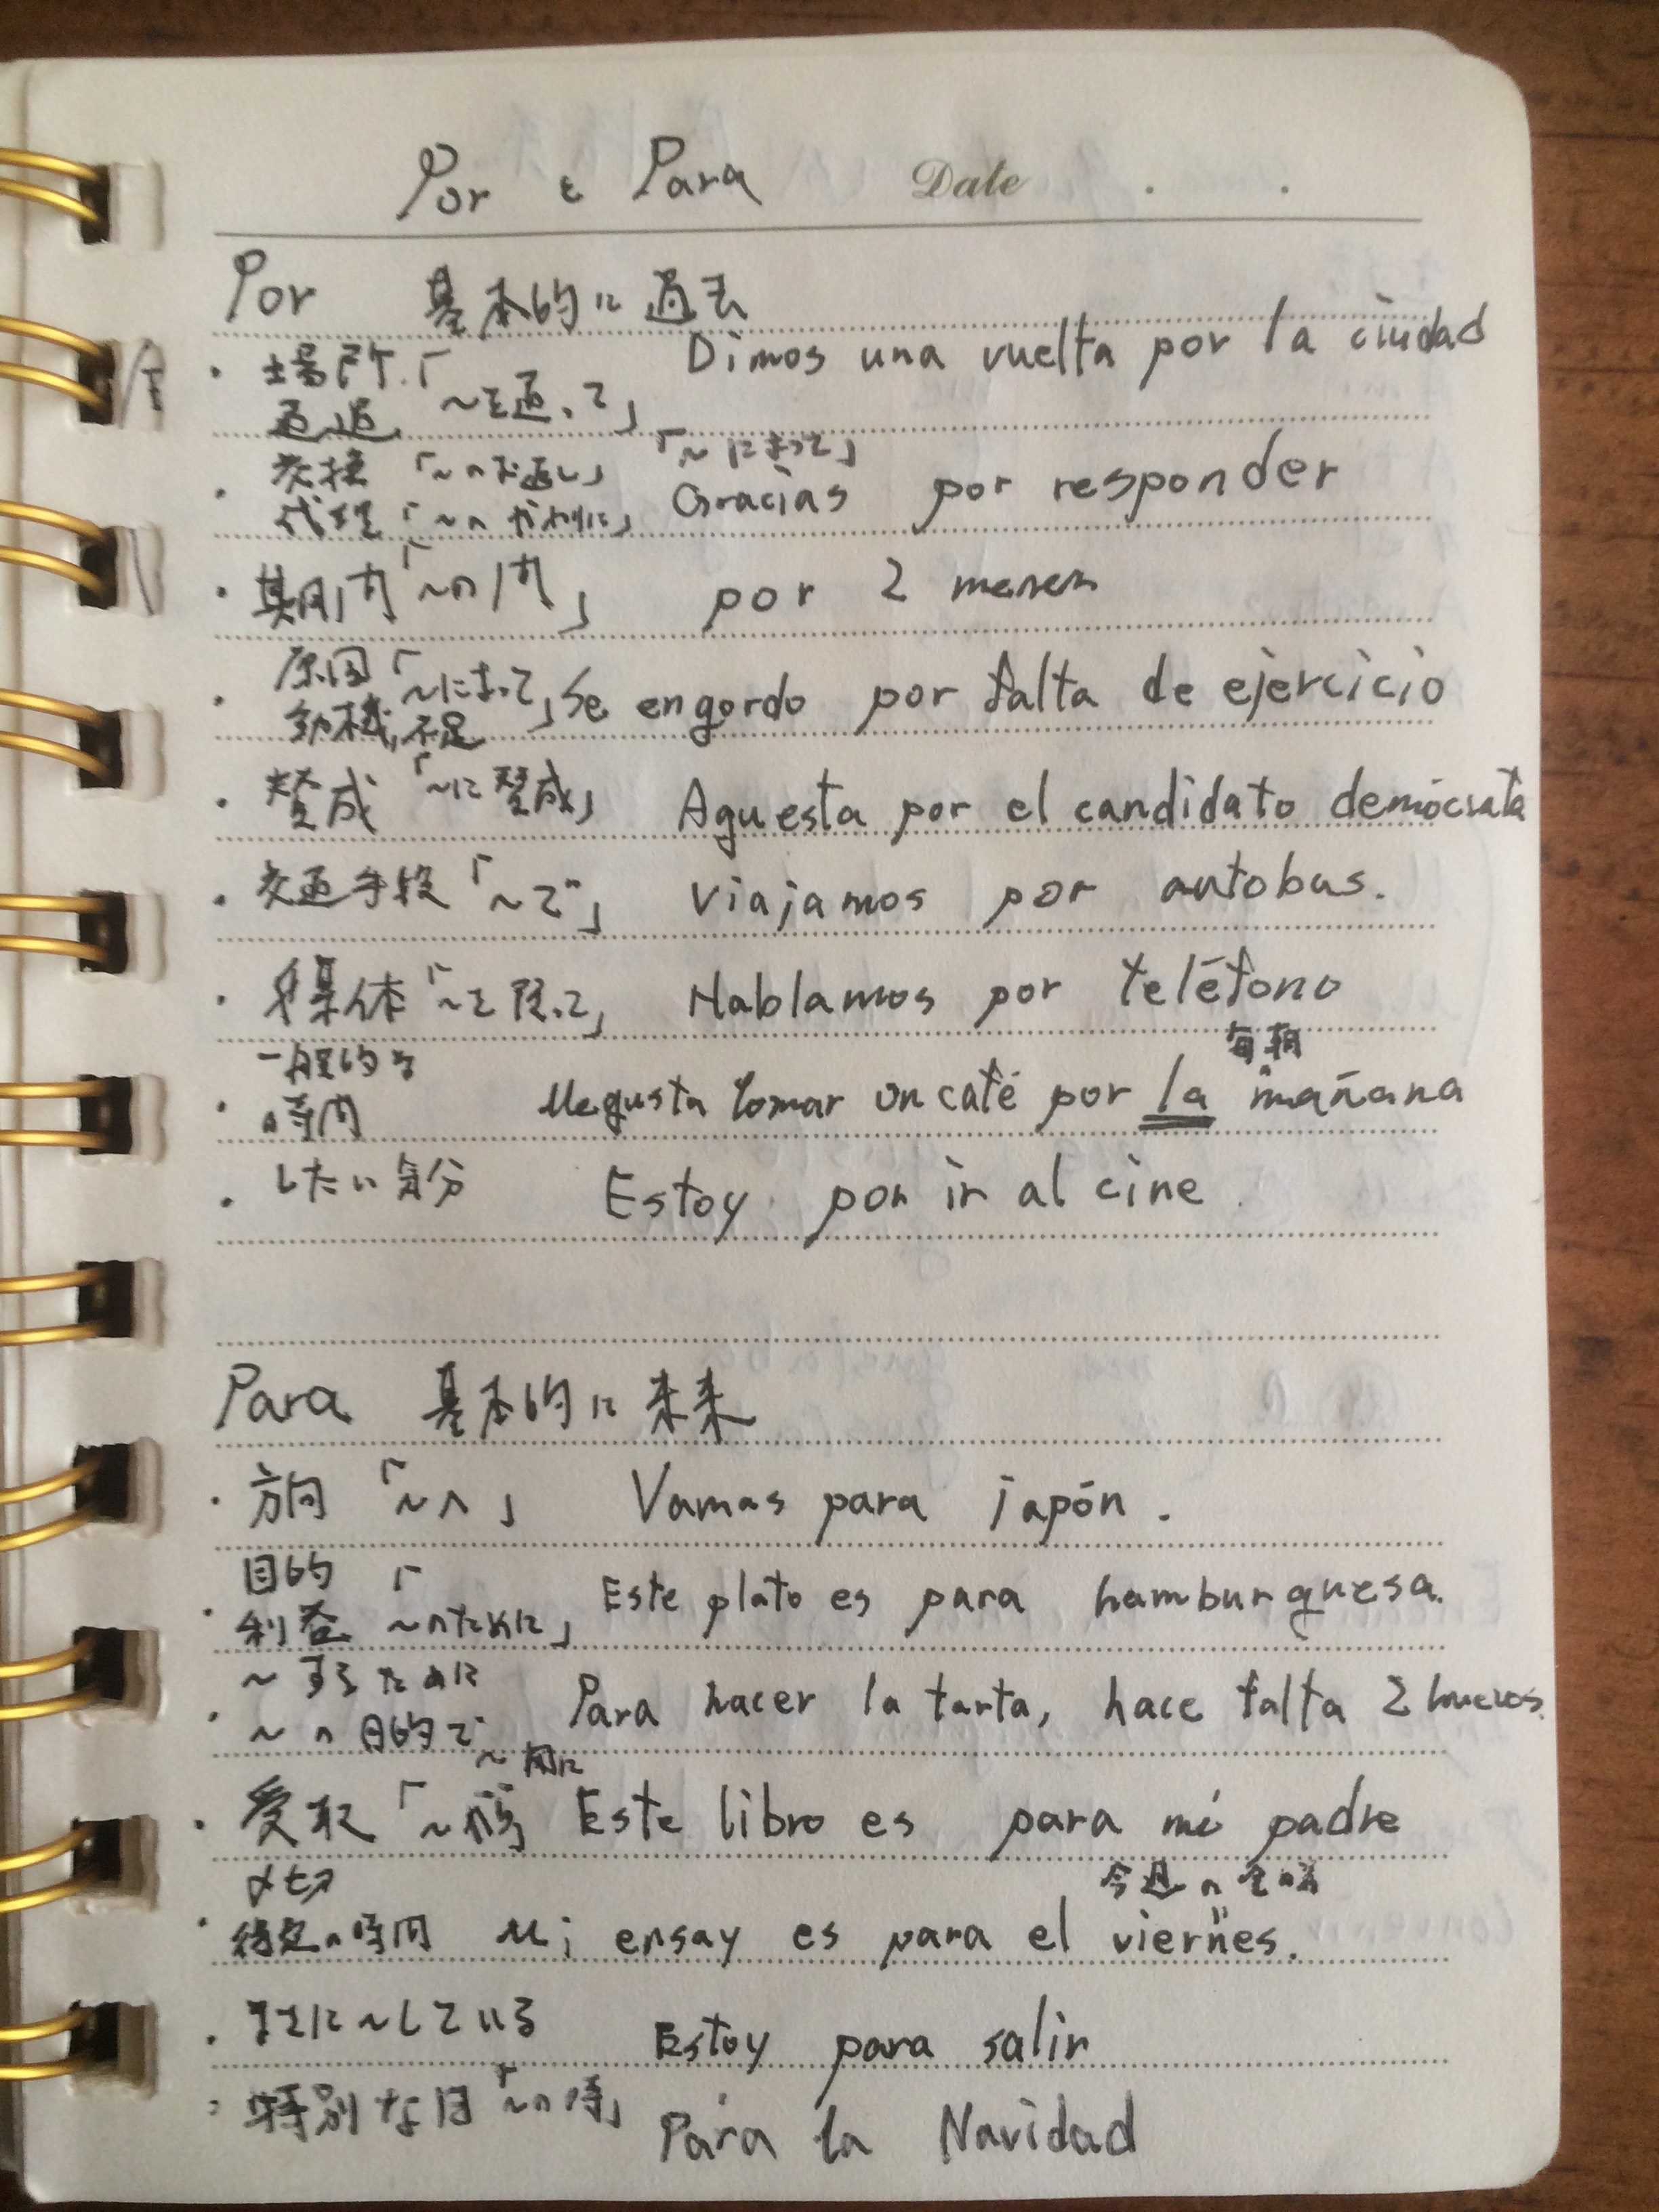 Por と Para Date . .
Por 基本的に過去
・場所「~を通って」 Dimos una vuelta por la ciudad
通過
「~によって」
・交換「~のお返し」 Gracias por responder
代理「~の代わりに」
・期間内「~の内」 por 2 meses
・原因「~によって」 Se engordo por falta de ejercicio
動機,不足
・賛成「~に賛成」 Aguesta por el candidato demócrata
・交通手段「~で」 Viajamos por autobus.
・媒体「~を 」 Hablamos por teléfono
一般的な 毎朝
・時間 Me gusta tomar un café por la mañana
・したい気分 Estoy por ir al cine.
Para 基本的に未来
・方向「~へ」 Vamos para japón.
目的
・利益「~のために」 Este plato es para hamburguesa.
~するために
・~の目的で Para hacer la tarta, hace falta 2 huevos.
~用に
・受取「~ 」 Este libro es para mi padre
〆切 今週の金曜
・特定の時間 Mi ensay es para el viernes.
・まさに~している Estoy para salir
・特別な日「~の時」 Para la Navidad